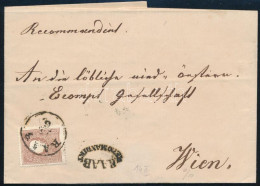 Recommandirt
An die löbliche nied. österr.
Escompt. Gesellschaft
Wien.
RAAB
RECOMMANDIRT